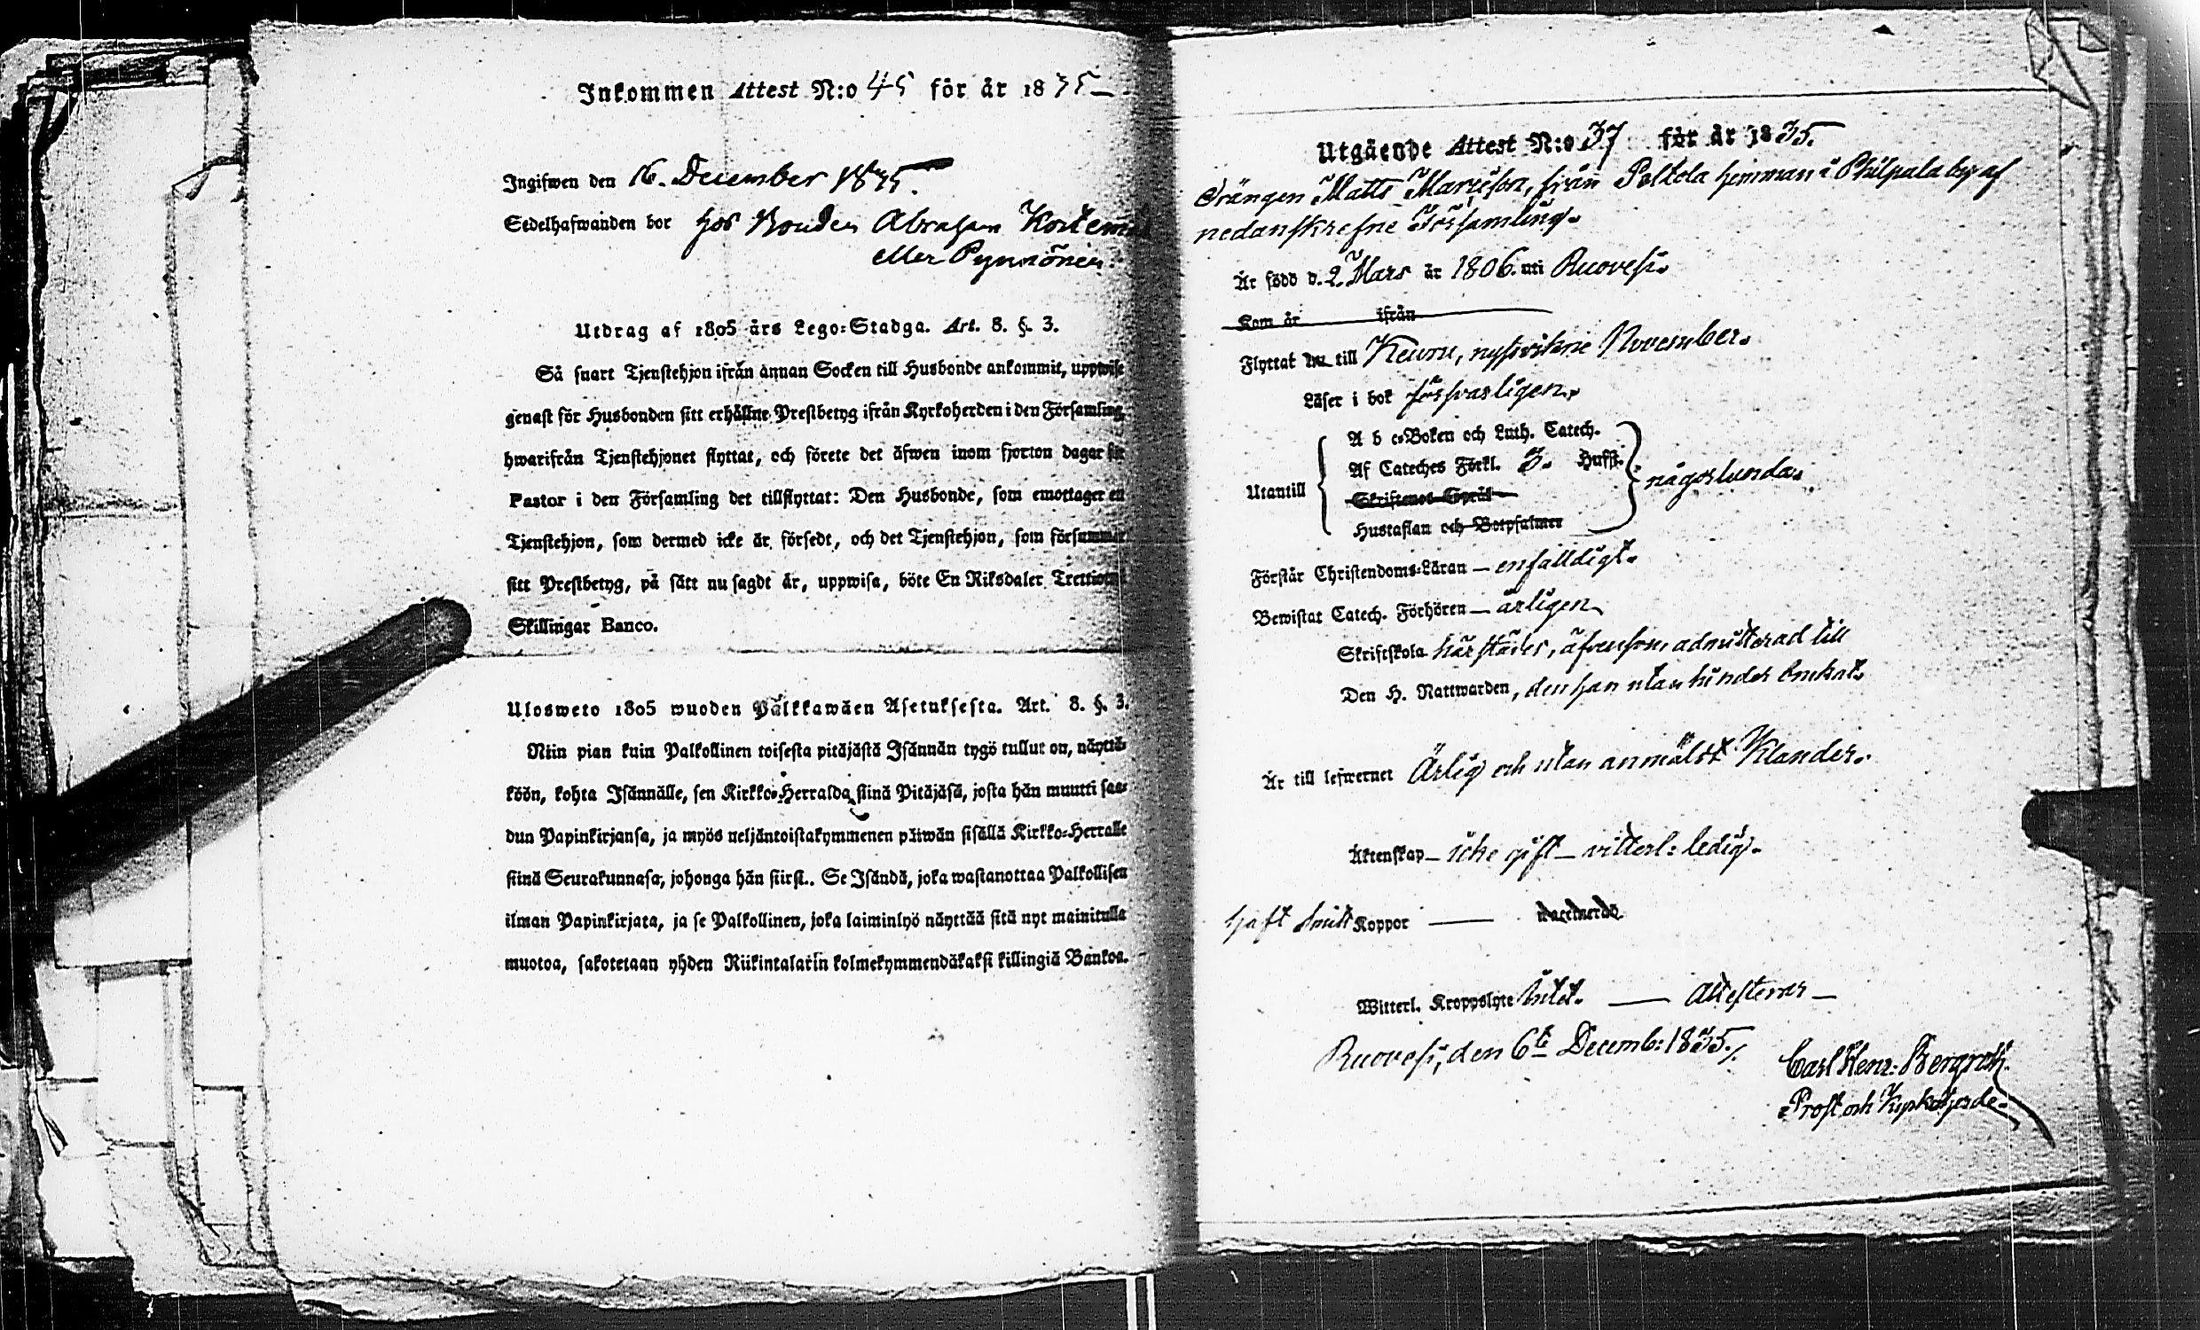 Inkommen Attest N:o 45 för år 1835
Ingifwen den 16. December 1835.
Sedelhafwanden bor hos Bonden Abraham
eller Pynnönen.
Utdrag af 1805 års Lego-Stadga. Art. 8. §. 3.
Så snart Tjenstehjon ifrån annan Socken till Husbonde ankommit, uppwise
genast för Husbonden sitt erhållne Prestbetyg ifrån Kyrkoherden i den Församling,
hwarifrån Tjenstehjonet flyttat, och förete det äfwen inom fjorton dagar för
Pastor i den Församling det tillflyttat: Den Husbonde, som emottager en
Tjenstehjon, som dermed icke är försedt, och det Tjenstehjon, som försummar
sitt Prestbetyg, på sätt nu sagdt är, uppwisa, böte En Riksdaler Trettiotwå
Skillingar Banco.
Ulosweto 1805 wuoden Pälkkawäen Asetuksesta. Art. 8. §. 3.
Niin pian kuin Palkollinen toisesta pitäjästä Isännän tygö tullut on, näyttä-
köön, kohta Isännälle, sen Kirkko-Herralda siinä Pitäjäsä, josta hän muutti saa-
dun Papinkirjansa, ja myös neljäntoistakymmenen päiwän sisällä Kirkko-Herralle
siinä Seurakunnasa, johonga hän siirst.. Se Isändä, joka wastanottaa Palkollisen
ilman Papinkirjata, ja se Palkollinen, joka laiminlyö näyttää sitä nyt mainitulla
muotoa, sakotetaan yhden Riikintalarin kolmekymmendäkaksi killingiä Bankoa.
Utgående Attest N:o 37 för år 1835.
Drängen Matts Mariæson, från Poltola hemman i Philpala by af
nedanskrefne Församling.
Är född d. 2. Mars år 1806. uti Ruovesi.
Kom år ifrån
Flyttat nu till Keuru, nystvikne November.
Läser i bok försvarligen.
A b c-Boken och Luth. Catech.
Af Cateches Förkl. 3. Hufst.
Utantill någorlunda.
Skriftenes Språk
Hustaflan och Botpsalmer
Förstår Christendoms-Läran — enfalldigt.
Bewistat Catech. Förhören — årligen
Skriftskola härstädes, äfvensom admitterad till
Den H. Nattwarden, den han utan hinder brukat.
Är till lefwernet Ärlig och utan anmält Klander.
Äktenskap — icke gift — vitterl: ledig.
haft Koppor — vaccinerad
Witterl. Kroppslyte intet. — Attesterar —
Ruovesi, den 6te Decemb: 1835./.
Carl Henr: Bergroth.
Prost och Kyrkoherde.